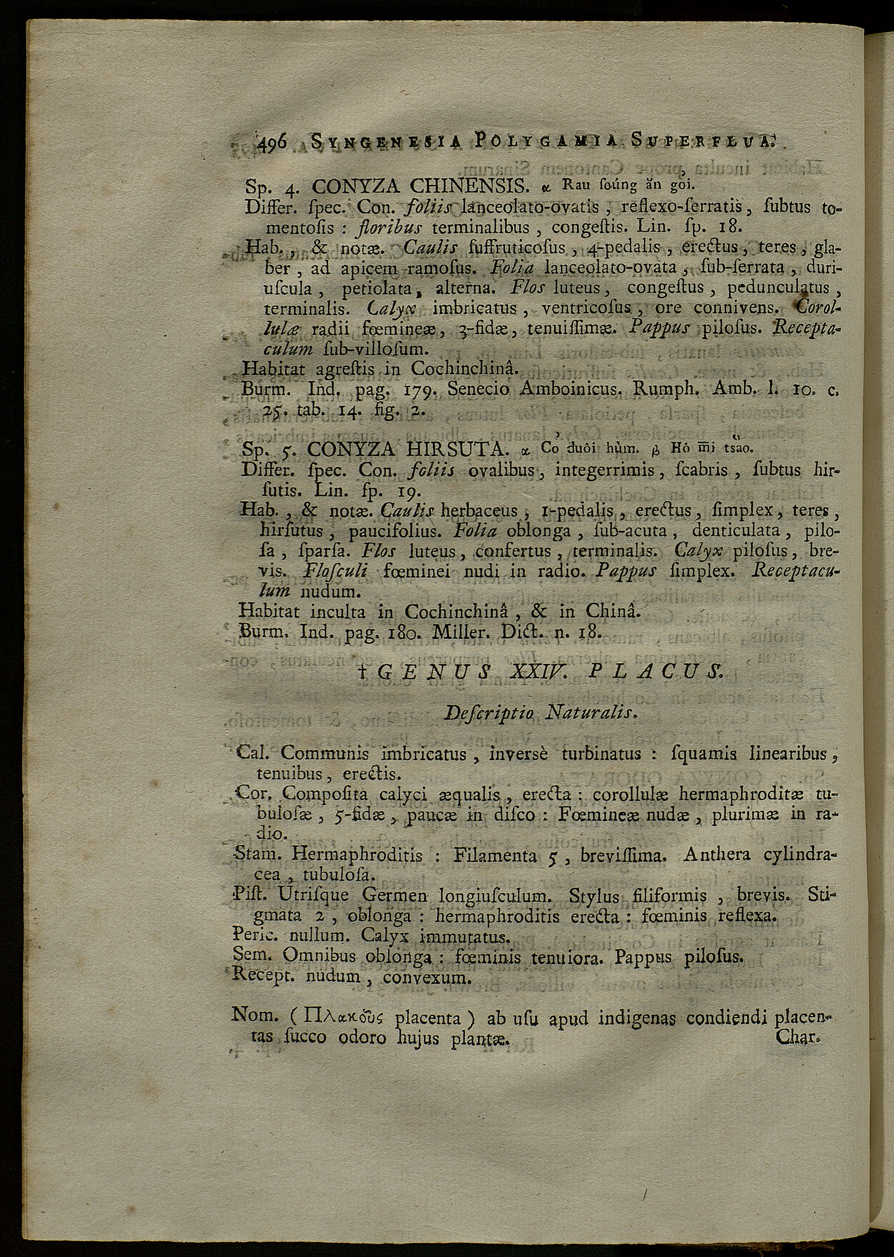 496 SYNGENESIA POLYGAMIA SUPERFLUA.
Sp. 4. CONYZA CHINENSIS. α Rau ſoúng ăn gỏi.
Differ. ſpec. Con. foliis lanceolato-ovatis, reflexo-ſerratis, ſubtus to-
mentoſis : floribus terminalibus, congeſtis. Lin. ſp. 18.
Hab., & notæ. Caulis ſuffruticoſus, 4-pedalis, erectus, teres, gla-
ber, ad apicem ramoſus. Folia lanceolato-ovata, ſub-ſerrata, duri-
uſcula, petiolata, alterna. Flos luteus, congeſtus, pedunculatus,
terminalis. Calyx imbricatus, ventricoſus, ore connivens. Corol-
lulæ radii fœmineæ, 3-fidæ, tenuiſſimæ. Pappus piloſus. Recepta-
culum ſub-villoſum.
Habitat agreſtis in Cochinchinâ.
Burm. Ind. pag. 179. Senecio Amboinicus. Rumph. Amb. l. 10. c.
25. tab. 14. fig. 2.
Sp. 5. CONYZA HIRSUTA. α Cỏ đuôi hùm. β Hô mi tsao.
Differ. ſpec. Con. foliis ovalibus, integerrimis, ſcabris, ſubtus hir-
ſutis. Lin. ſp. 19.
Hab., & notæ. Caulis herbaceus, 1-pedalis, erectus, ſimplex, teres,
hirſutus, paucifolius. Folia oblonga, ſub-acuta, denticulata, pilo-
ſa, ſparſa. Flos luteus, confertus, terminalis. Calyx piloſus, bre-
vis. Floſculi fœminei nudi in radio. Pappus ſimplex. Receptacu-
lum nudum.
Habitat inculta in Cochinchinâ, & in Chinâ.
Burm. Ind. pag. 180. Miller. Dict. n. 18.
† GENUS XXIV. PLACUS.
Deſcriptio Naturalis.
Cal. Communis imbricatus, inversè turbinatus : ſquamis linearibus,
tenuibus, erectis.
Cor. Compoſita calyci æqualis, erecta : corollulæ hermaphroditæ tu-
buloſæ, 5-fidæ, paucæ in diſco : Fœmineæ nudæ, plurimæ in ra-
dio.
Stam. Hermaphroditis : Filamenta 5, breviſſima. Anthera cylindra-
cea, tubuloſa.
Piſt. Utriſque Germen longiuſculum. Stylus filiformis, brevis. Sti-
gmata 2, oblonga : hermaphroditis erecta : fœminis reflexa.
Peric. nullum. Calyx immutatus.
Sem. Omnibus oblonga : fœminis tenuiora. Pappus piloſus.
Recept. nudum, convexum.
Nom. (Πλακοῦς placenta) ab uſu apud indigenas condiendi placen-
tas ſucco odoro hujus plantæ.
Char.